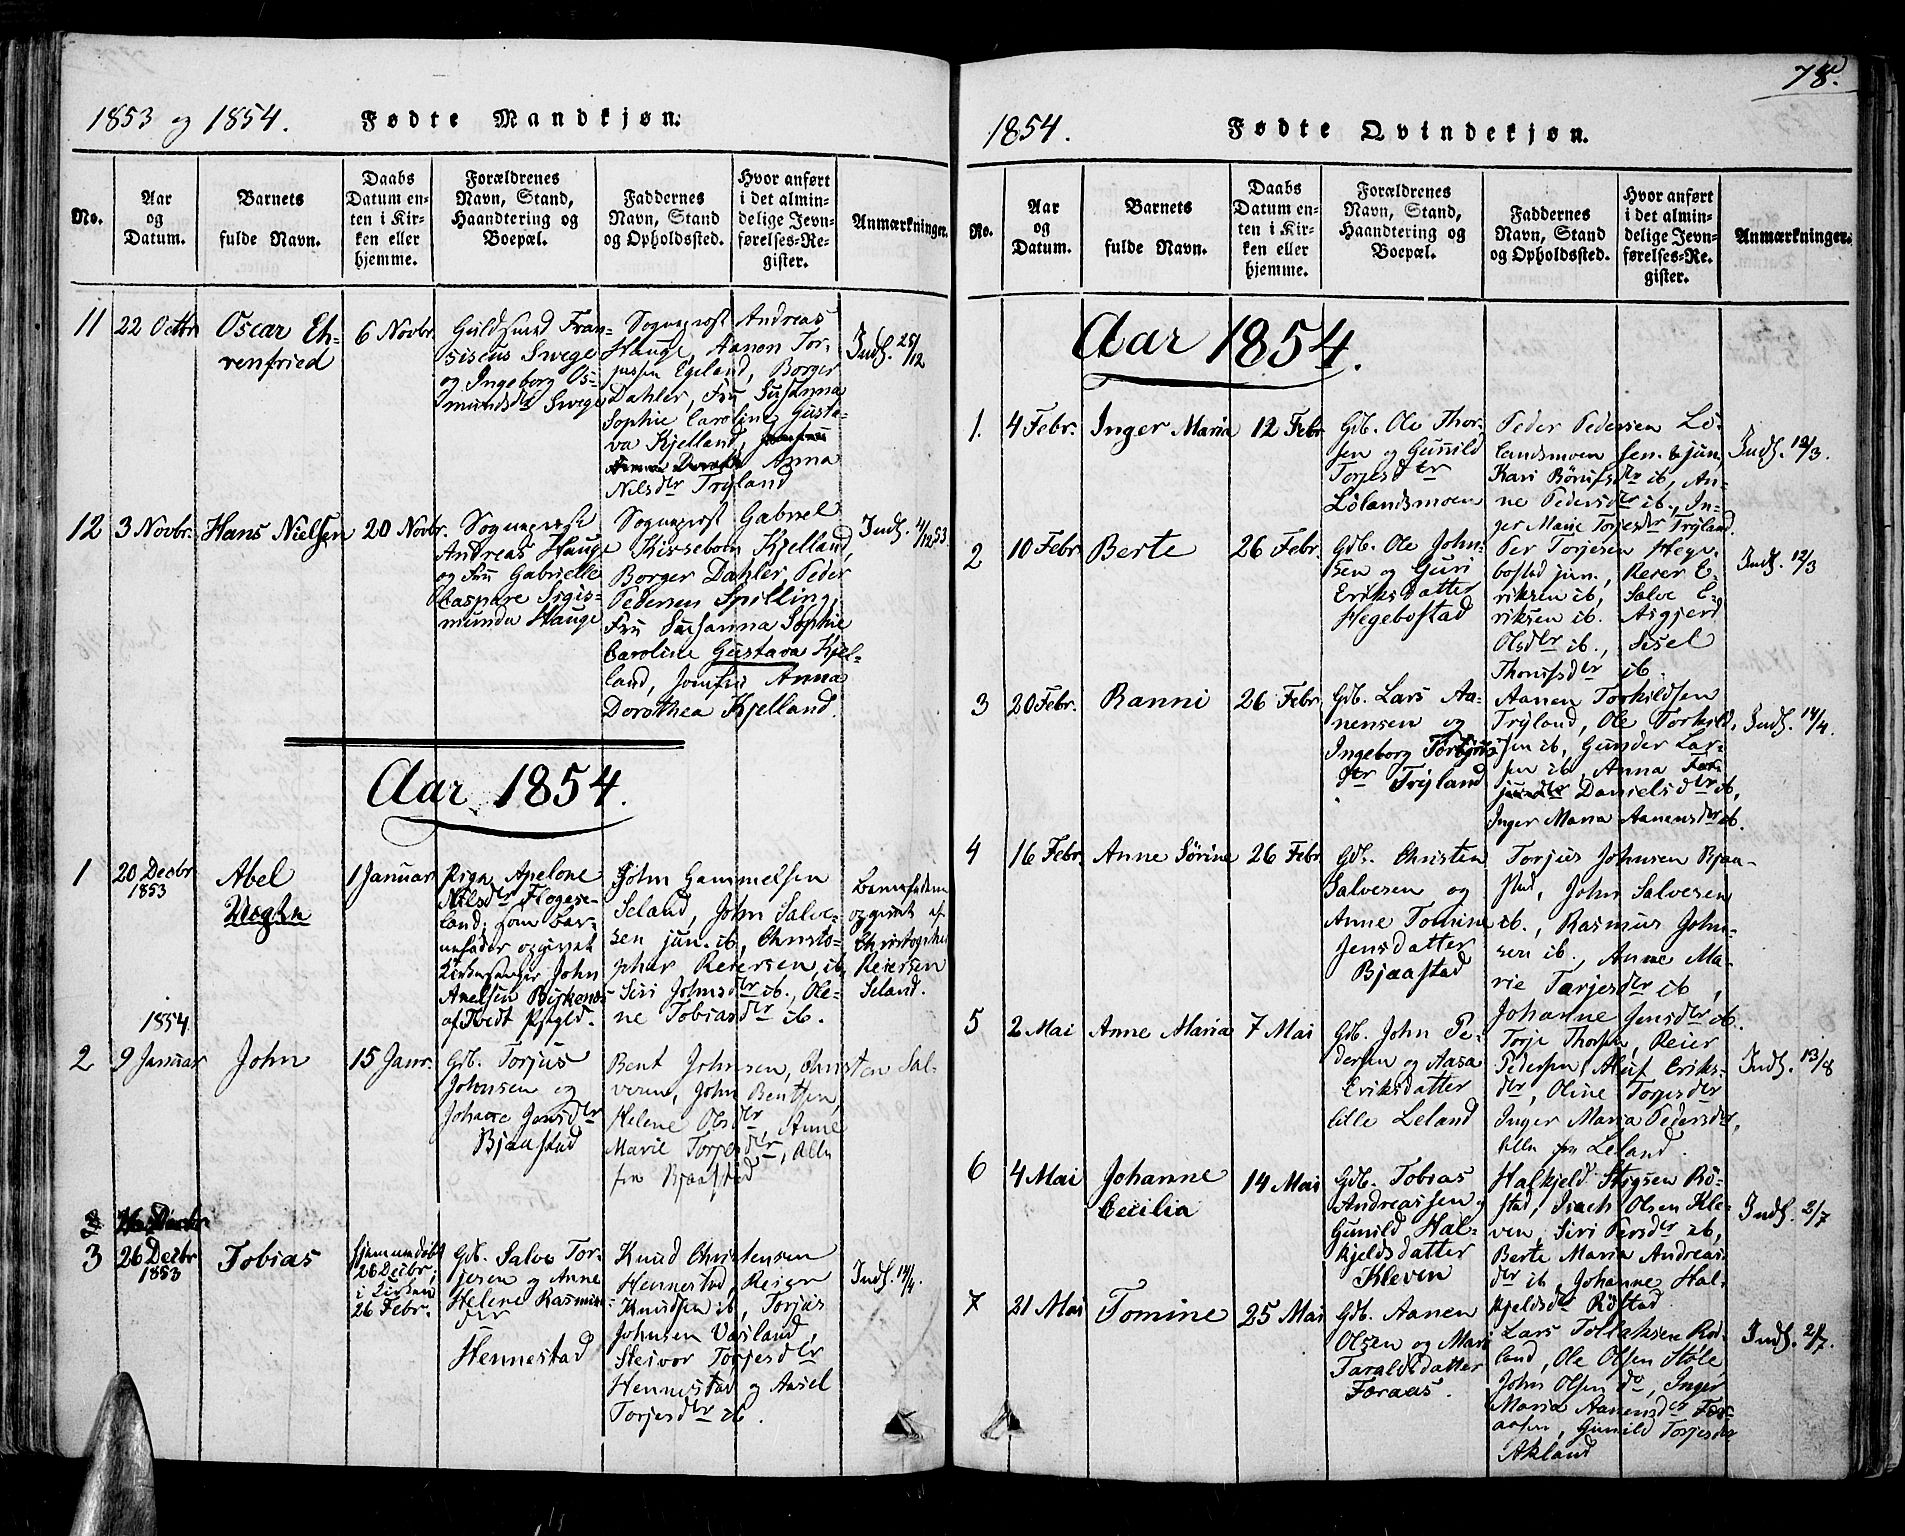 1853 og 1854. Fødte Mandkjøn.
No.
Aar
og
Datum.
Barnets
fulde Navn.
Daabs
Datum en-
ten i Kir-
ken eller
hjemme.
Forældrenes
Navn, Stand,
Haandtering og
Boepæl.
Faddernes
Navn, Stand
og Opholdssted.
Hvor anført
i det almin-
delige Jevn-
førelses-Re-
gister.
Anmærkninger.
11
22 Octbr
Oscar Eh-
renfried
6 Novbr
Guldsmed Fran-
siscus Swege
og Ingeborg Os-
mundsdtr Swege
Sogneprest Andreas
Hauge, Aanon Tor-
jussen Egeland, Borger
Dahler, Fru Susanna
Sophie Caroline Gusta-
va Kjelland,
Anna
Nilsdtr Tryland
Indf. 25/12
12
3 Novbr.
Hans Nielsen
20 Novbr.
Sogneprest
Andreas Hauge
og Fru Gabrielle
Caspare Sigis-
munda Hauge
Sogneprest Gabriel
Kirsebom Kjelland,
Borger Dahler, Peder
Pedersen Spilling,
Fru Susanna Sophie
Caroline Gustava Kjel-
land, Jomfru Anna
Dorothea Kjelland.
Indf. 4/12 53.
Aar 1854.
1
20 Decbr
1853
Abel
1 Januar
Pige Apelone
Nilsdtr Flogese-
land, som bar-
nefader opgivet
Kirkesanger John
Axelsen Birkenes
af Tvedt Pstgld.
John Gammelsen
Seland, John Salve-
sen jun. ib, Christo-
pher Reiersen ib,
Siri Johnsdtr ib., Ole-
ne Tobiasdtr ib.
Barnefaderen
opgivet af
Christopher
Reiersen
Seland.
1854
2
9 Januar
John
15 Janr.
Gdb. Torjus
Johnsen og
Johanne Jensdtr
Bjaastad
Bent Johnsen, Christen Sal-
vesen, John Bentsen,
Helene Olsdtr, Anne
Marie Torjesdtr, Alle
fra Bjaastad
3
26 Decbr
1853
Tobias
hjemmedøbt
26 Decbr,
i Kirken
26 Febr.
Gdb. Salve Tor-
jesen og Anne
Helene Rasmus-
dtr
Hennestad
Knud Christensen
Hennestad, Reier
Knudsen ib, Torjus
Johnsen Vasland,
Steivor Torjesdtr
Hennestad og Aasel
Torjesdtr ib.
Indf. 14/4.
78.
1854. Fødte Qvindekjøn.
No.
Aar
og
Datum.
Barnets
fulde Navn.
Daabs
Datum en-
ten i Kir-
ken eller
hjemme.
Forældrenes
Navn, Stand,
Haandtering og
Boepæl.
Faddernes
Navn, Stand
og Opholdssted.
Hvor anført
i det almin-
delige Jevn-
førelses-Re-
gister.
Anmærkninger.
Aar 1854.
1.
4 Febr.
Inger Maria
12 Febr
Gdb. Ole Thor-
sen og Gunild
Torjesdtr
Lølandsmoen
Peder Pedersen Lø-
landsmoen sen. & jun,
Kari Børufsdtr ib, An-
ne Pedersdtr ib., In-
ger Marie Torjesdtr Tryland.
Indf. 12/3.
2
10 Febr
Berte
26 Febr.
Gdb. Ole John-
sen og Guri
Eriksdatter
Hegebostad
Per Torjesen Hege-
bostad jun., Reier E-
riksen ib, Salve E-
riksen ib. Asgjerd
Olsdtr ib., Sisel
Thorufsdtr ib.
Indf. 12/3
3
20 Febr.
Ranni
26 Febr
Gdb. Lars Aa-
nensen og
Ingeborg Torjus-
dtr Tryland
Aanen Torkildsen
Tryland, Ole Torkild-
sen ib, Gunder Lar-
sen ib, Anna
Danielsdtr ib,
Inger Maria Aanensdtr ib.
Indf. 14/4.
4
16 Febr.
Anne Sørine
26 Febr
Gdb. Christen
Salvesen og
Anne Tomine
Jensdatter
Bjaastad
Torjus Johnsen Bjaa-
stad, John Salvesen
ib., Rasmus John-
sen ib., Anne Ma-
rie Tarjesdtr ib,
Johanne Jensdtr ib.
5
2 Mai
Anne Maria
7 Mai
Gdb. John Pe-
dersen og Aasa
Eriksdatter
lille Leland
Torje Thorsen, Reier
Pedersen, Aluf Eriks-
dtr, Oline Torjesdtr
Inger Maria Pedersdtr,
Alle fra Leland.
Indf. 13/8
6
4 Mai
Johanne
Cecilia
14 Mai
Gdb. Tobias
Andreassen og
Gunild Hal-
kjeldsdatter
Kleven
Halkjeld Stigsen Rø-
stad, Isach Olsen Kle-
ven, Siri Persdtr ib,
Berte Maria Andreas-
dtr ib, Johanne Hal-
kjeldsdtr Røstad
Indf. 2/7
7
21 Mai
Tomine
25 Mai
Gdb. Aanen
Olsen og Mari
Taraldsdatter
Foraas.
Lars Tollaksen Rø-
land, Ole Olsen Støle
John Olsen do, Inger
Maria Aanensdtr For-
aasen, Gunild Torjesdtr
Akland
Indf. 2/7.